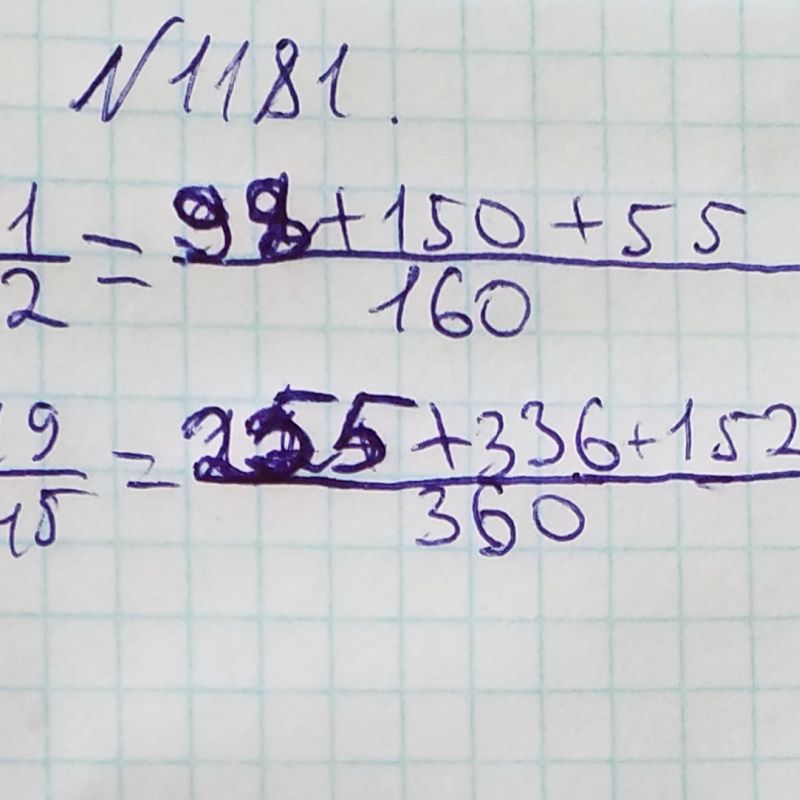 №1181.
1/2 = 98+150+55/160
19/45 = 255+336+152/360